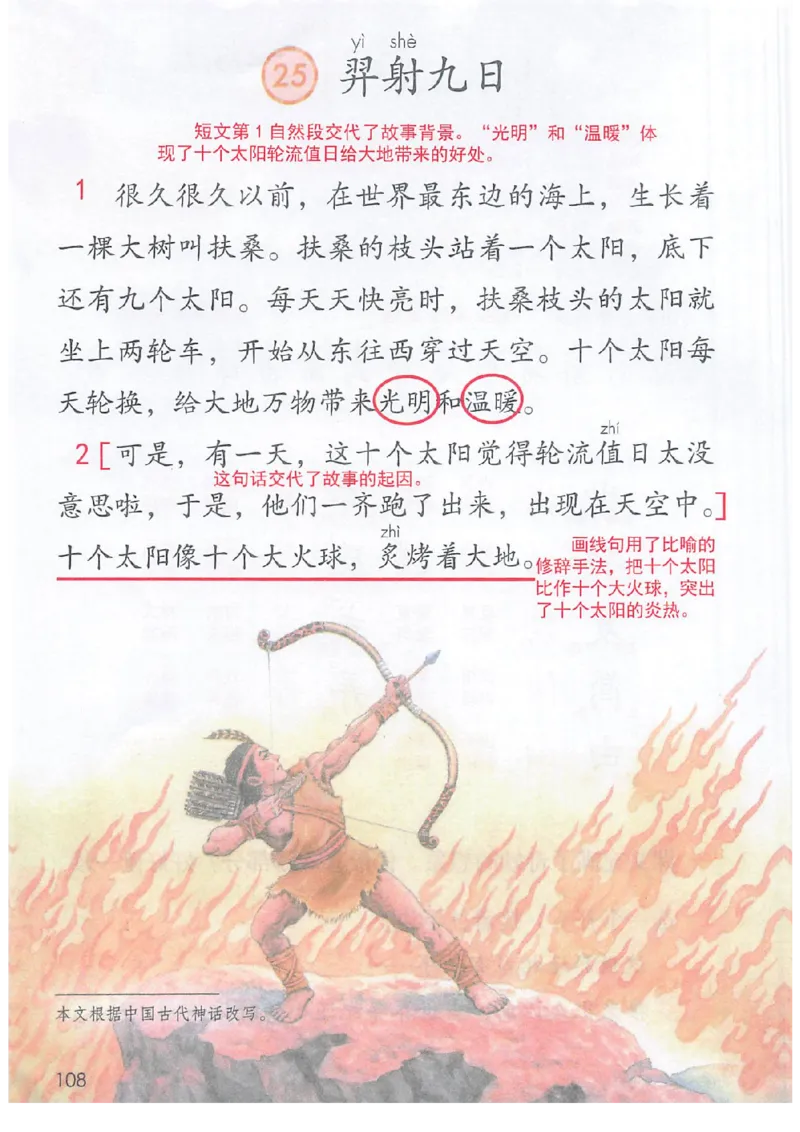 yì shè
25 羿射九日
短文第1自然段交代了故事背景。“光明”和“温暖”体
现了十个太阳轮流值日给大地带来的好处。
1 很久很久以前，在世界最东边的海上，生长着
一棵大树叫扶桑。扶桑的枝头站着一个太阳，底下
还有九个太阳。每天天快亮时，扶桑枝头的太阳就
坐上两轮车，开始从东往西穿过天空。十个太阳每
天轮换，给大地万物带来光明和温暖。
zhí
2 [可是，有一天，这十个太阳觉得轮流值日太没
这句话交代了故事的起因。
意思啦，于是，他们一齐跑了出来，出现在天空中。]
zhì
十个太阳像十个大火球，炙烤着大地。
画线句用了比喻的
修辞手法，把十个太阳
比作十个大火球，突出
了十个太阳的炎热。
本文根据中国古代神话改写。
108